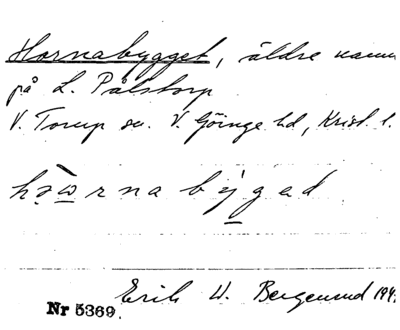 Hornabygget, äldre namn
på L. Pålstorp
V. Torup sn. V. Göinge hd, Krist. l.
hɔ̀wrnabýgəd
Erik W. Bergenrud 194
Nr 5369.